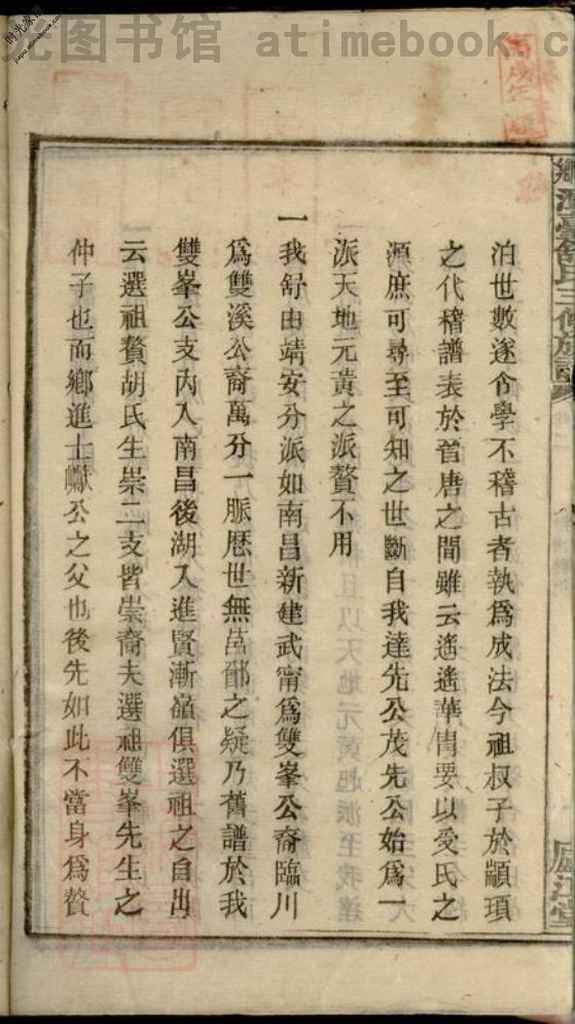 光图书馆 atimebook.c
泊世數遂令學不稽古者執爲成法今祖叔子於顓頊
之代稽譜表於晉唐之間雖云遙遙華胄要以受氏之
源庶可尋至可知之世斷自我達先公茂先公始爲一
派天地元黃之派贅不用
一我舒由靖安分派如南昌新建武甯爲雙峯公裔臨川
爲雙溪公裔萬分一脈歷世無莒鄫之疑乃舊譜於我
雙峯公支內入南昌後湖入進賢漸嶺俱選祖之自出
云選祖贅胡氏生崇二支皆崇裔夫選祖雙峯先生之
仲子也而鄉進士巘公之父也後先如此不當身爲贅
廬江堂